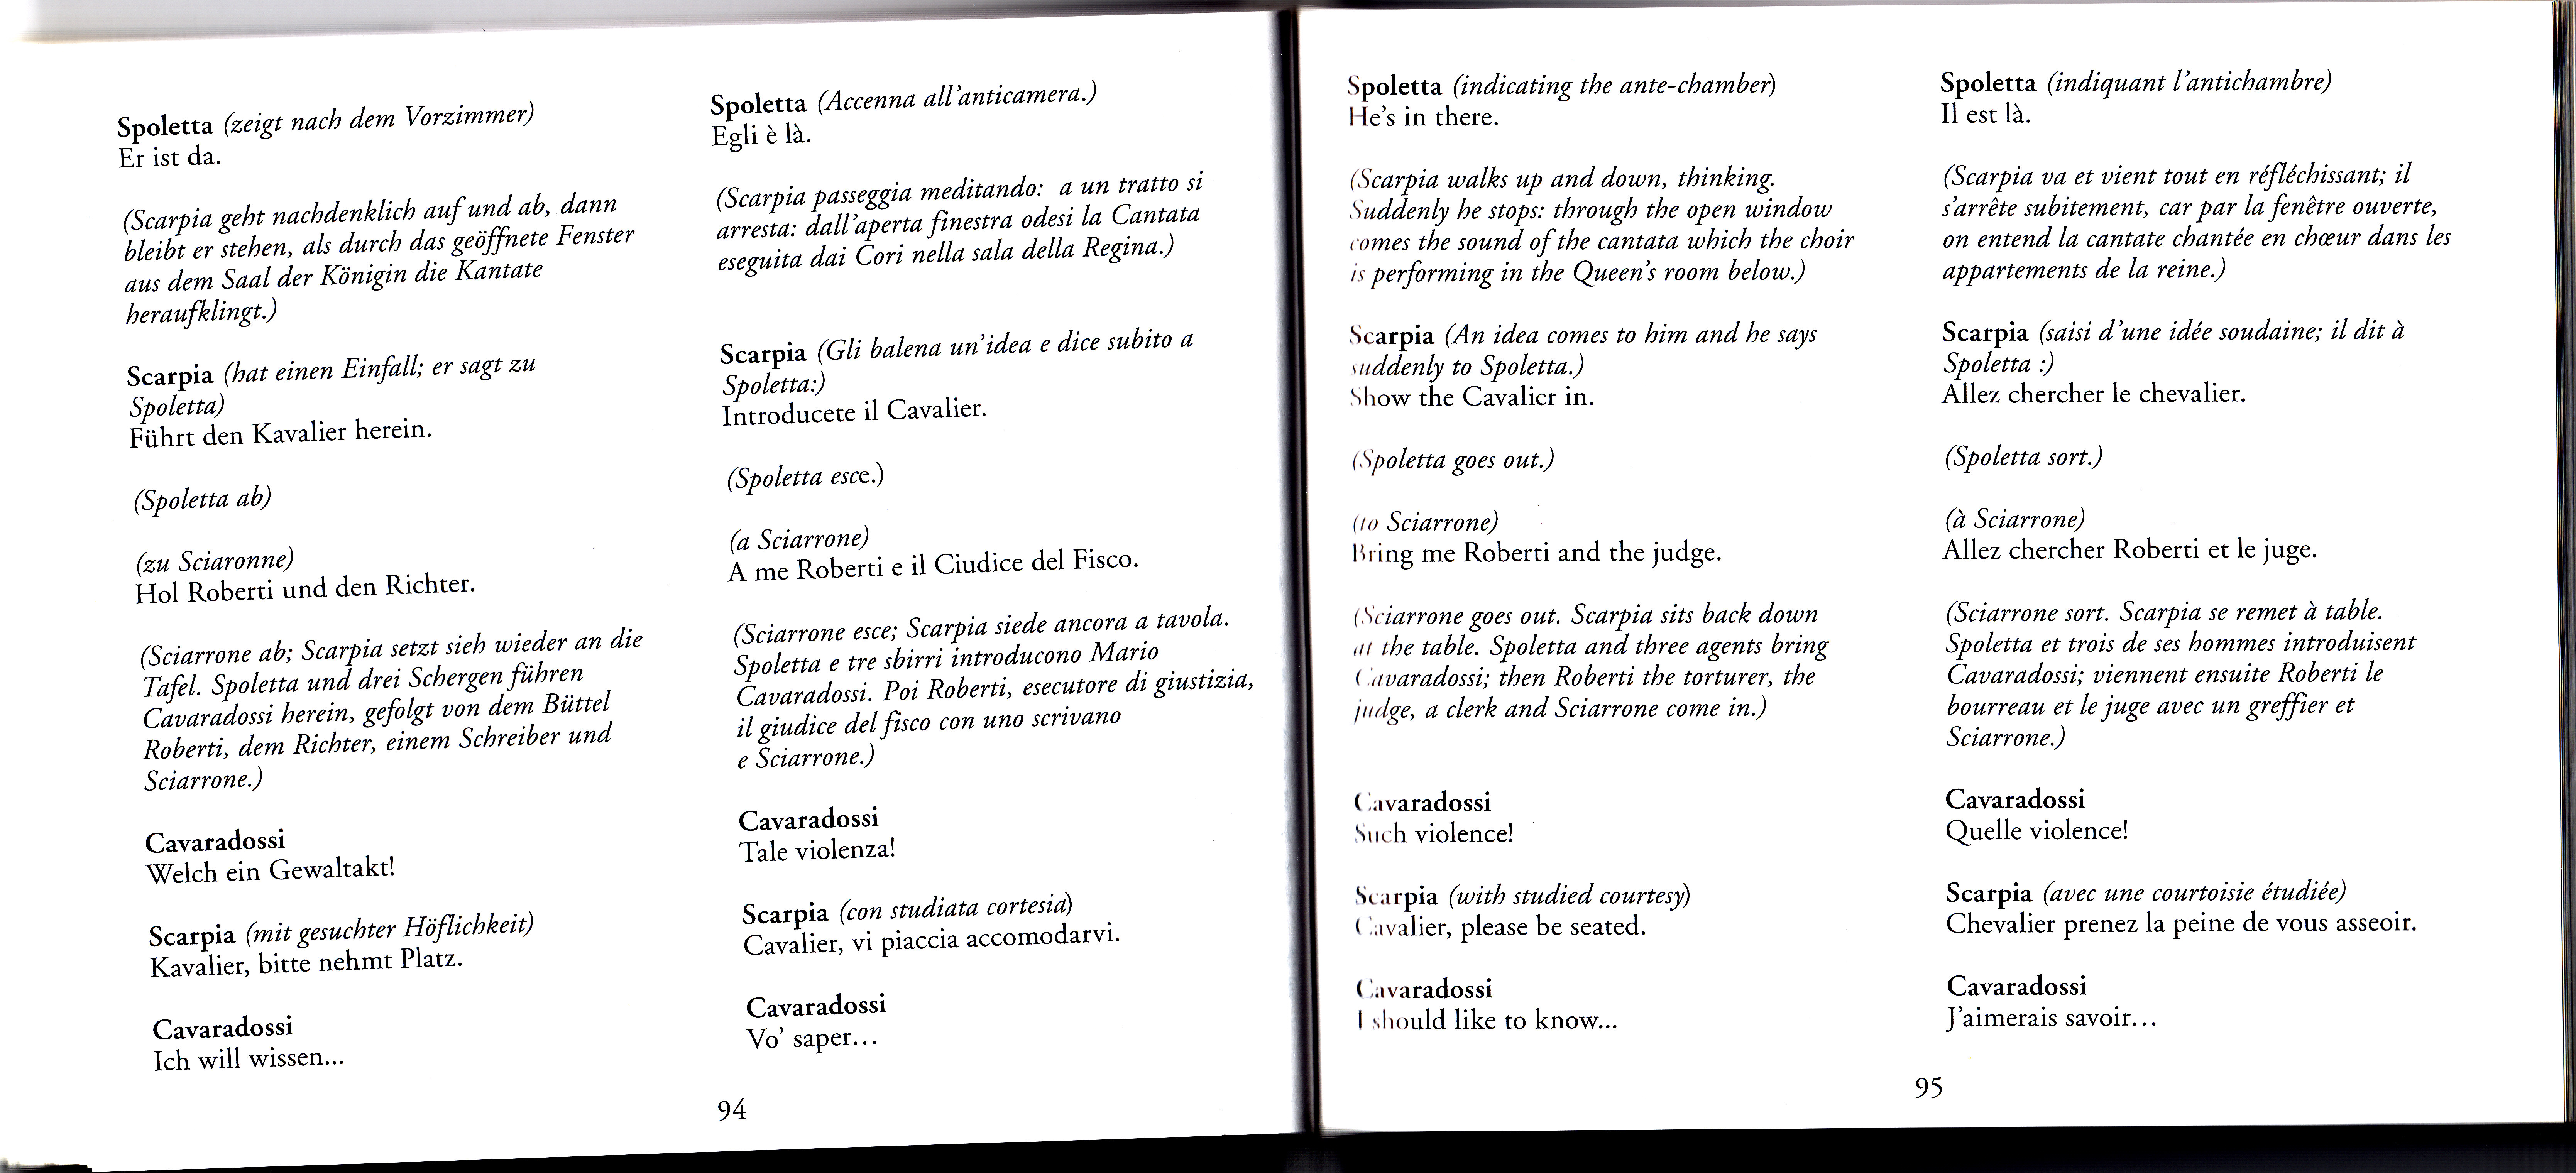 Spoletta (zeigt nach dem Vorzimmer)
Er ist da.
(Scarpia geht nachdenklich auf und ab, dann
bleibt er stehen, als durch das geöffnete Fenster
aus dem Saal der Königin die Kantate
heraufklingt.)
Scarpia (hat einen Einfall; er sagt zu
Spoletta)
Führt den Kavalier herein.
(Spoletta ab)
(zu Sciaronne)
Hol Roberti und den Richter.
(Sciarrone ab; Scarpia setzt sieh wieder an die
Tafel. Spoletta und drei Schergen führen
Cavaradossi herein, gefolgt von dem Büttel
Roberti, dem Richter, einem Schreiber und
Sciarrone.)
Cavaradossi
Welch ein Gewaltakt!
Scarpia (mit gesuchter Höflichkeit)
Kavalier, bitte nehmt Platz.
Cavaradossi
Ich will wissen...
Spoletta (Accenna all'anticamera.)
Egli è là.
(Scarpia passeggia meditando: a un tratto si
arresta: dall'aperta finestra odesi la Cantata
eseguita dai Cori nella sala della Regina.)
Scarpia (Gli balena un'idea e dice subito a
Spoletta:)
Introducete il Cavalier.
(Spoletta esce.)
(a Sciarrone)
A me Roberti e il Ciudice del Fisco.
(Sciarrone esce; Scarpia siede ancora a tavola.
Spoletta e tre sbirri introducono Mario
Cavaradossi. Poi Roberti, esecutore di giustizia,
il giudice del fisco con uno scrivano
e Sciarrone.)
Cavaradossi
Tale violenza!
Scarpia (con studiata cortesia)
Cavalier, vi piaccia accomodarvi.
Cavaradossi
Vo' saper…
94
Spoletta (indicating the ante-chamber)
He's in there.
(Scarpia walks up and down, thinking.
Suddenly he stops: through the open window
comes the sound of the cantata which the choir
is performing in the Queen's room below.)
Scarpia (An idea comes to him and he says
suddenly to Spoletta.)
Show the Cavalier in.
(Spoletta goes out.)
(to Sciarrone)
Bring me Roberti and the judge.
(Sciarrone goes out. Scarpia sits back down
at the table. Spoletta and three agents bring
Cavaradossi; then Roberti the torturer, the
judge, a clerk and Sciarrone come in.)
Cavaradossi
Such violence!
Scarpia (with studied courtesy)
Cavalier, please be seated.
Cavaradossi
I should like to know...
Spoletta (indiquant l'antichambre)
Il est là.
(Scarpia va et vient tout en réfléchissant; il
s'arrête subitement, car par la fenêtre ouverte,
on entend la cantate chantée en chœur dans les
appartements de la reine.)
Scarpia (saisi d'une idée soudaine; il dit à
Spoletta :)
Allez chercher le chevalier.
(Spoletta sort.)
(à Sciarrone)
Allez chercher Roberti et le juge.
(Sciarrone sort. Scarpia se remet à table.
Spoletta et trois de ses hommes introduisent
Cavaradossi; viennent ensuite Roberti le
bourreau et le juge avec un greffier et
Sciarrone.)
Cavaradossi
Quelle violence!
Scarpia (avec une courtoisie étudiée)
Chevalier prenez la peine de vous asseoir.
Cavaradossi
J'aimerais savoir…
95